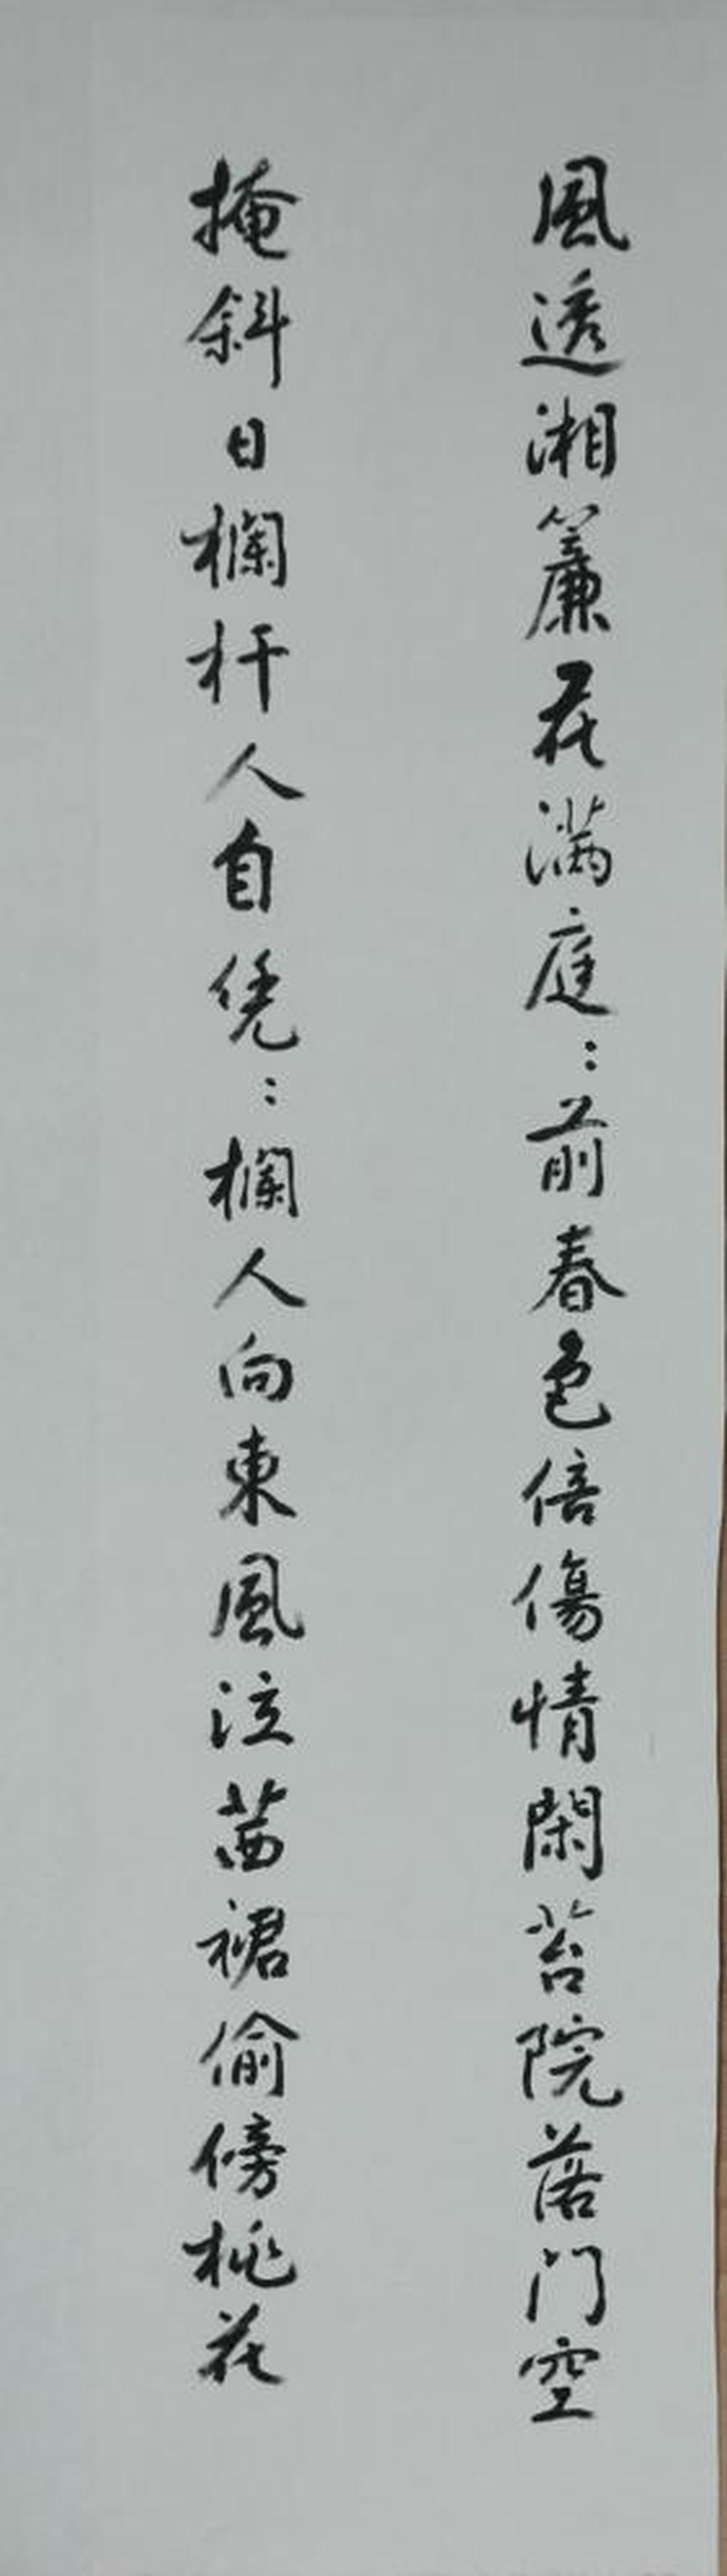 風透湘簾花滿庭：前春色倍傷情閑苔院落门空
掩斜日欄杆人自凭：欄人向東風泣茜裙偷傍桃花